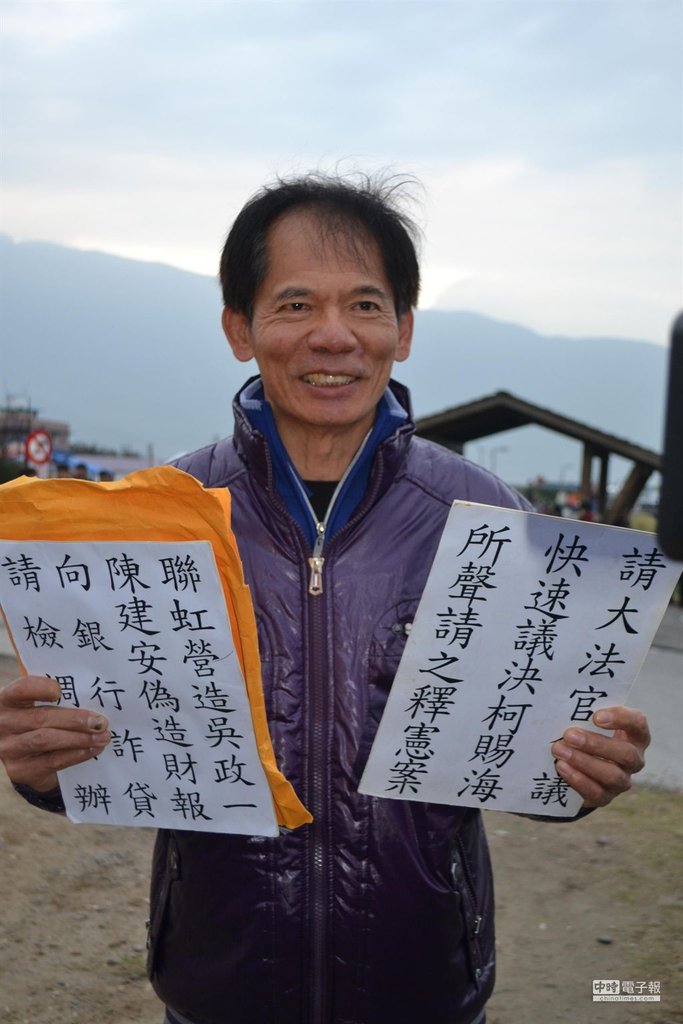 聯虹營造吳政一
陳建安偽造財報
向銀行詐貸
請檢調 辦
請大法官 議
快速議決柯賜海
所聲請之釋憲案
中時電子報
chinatimes.com